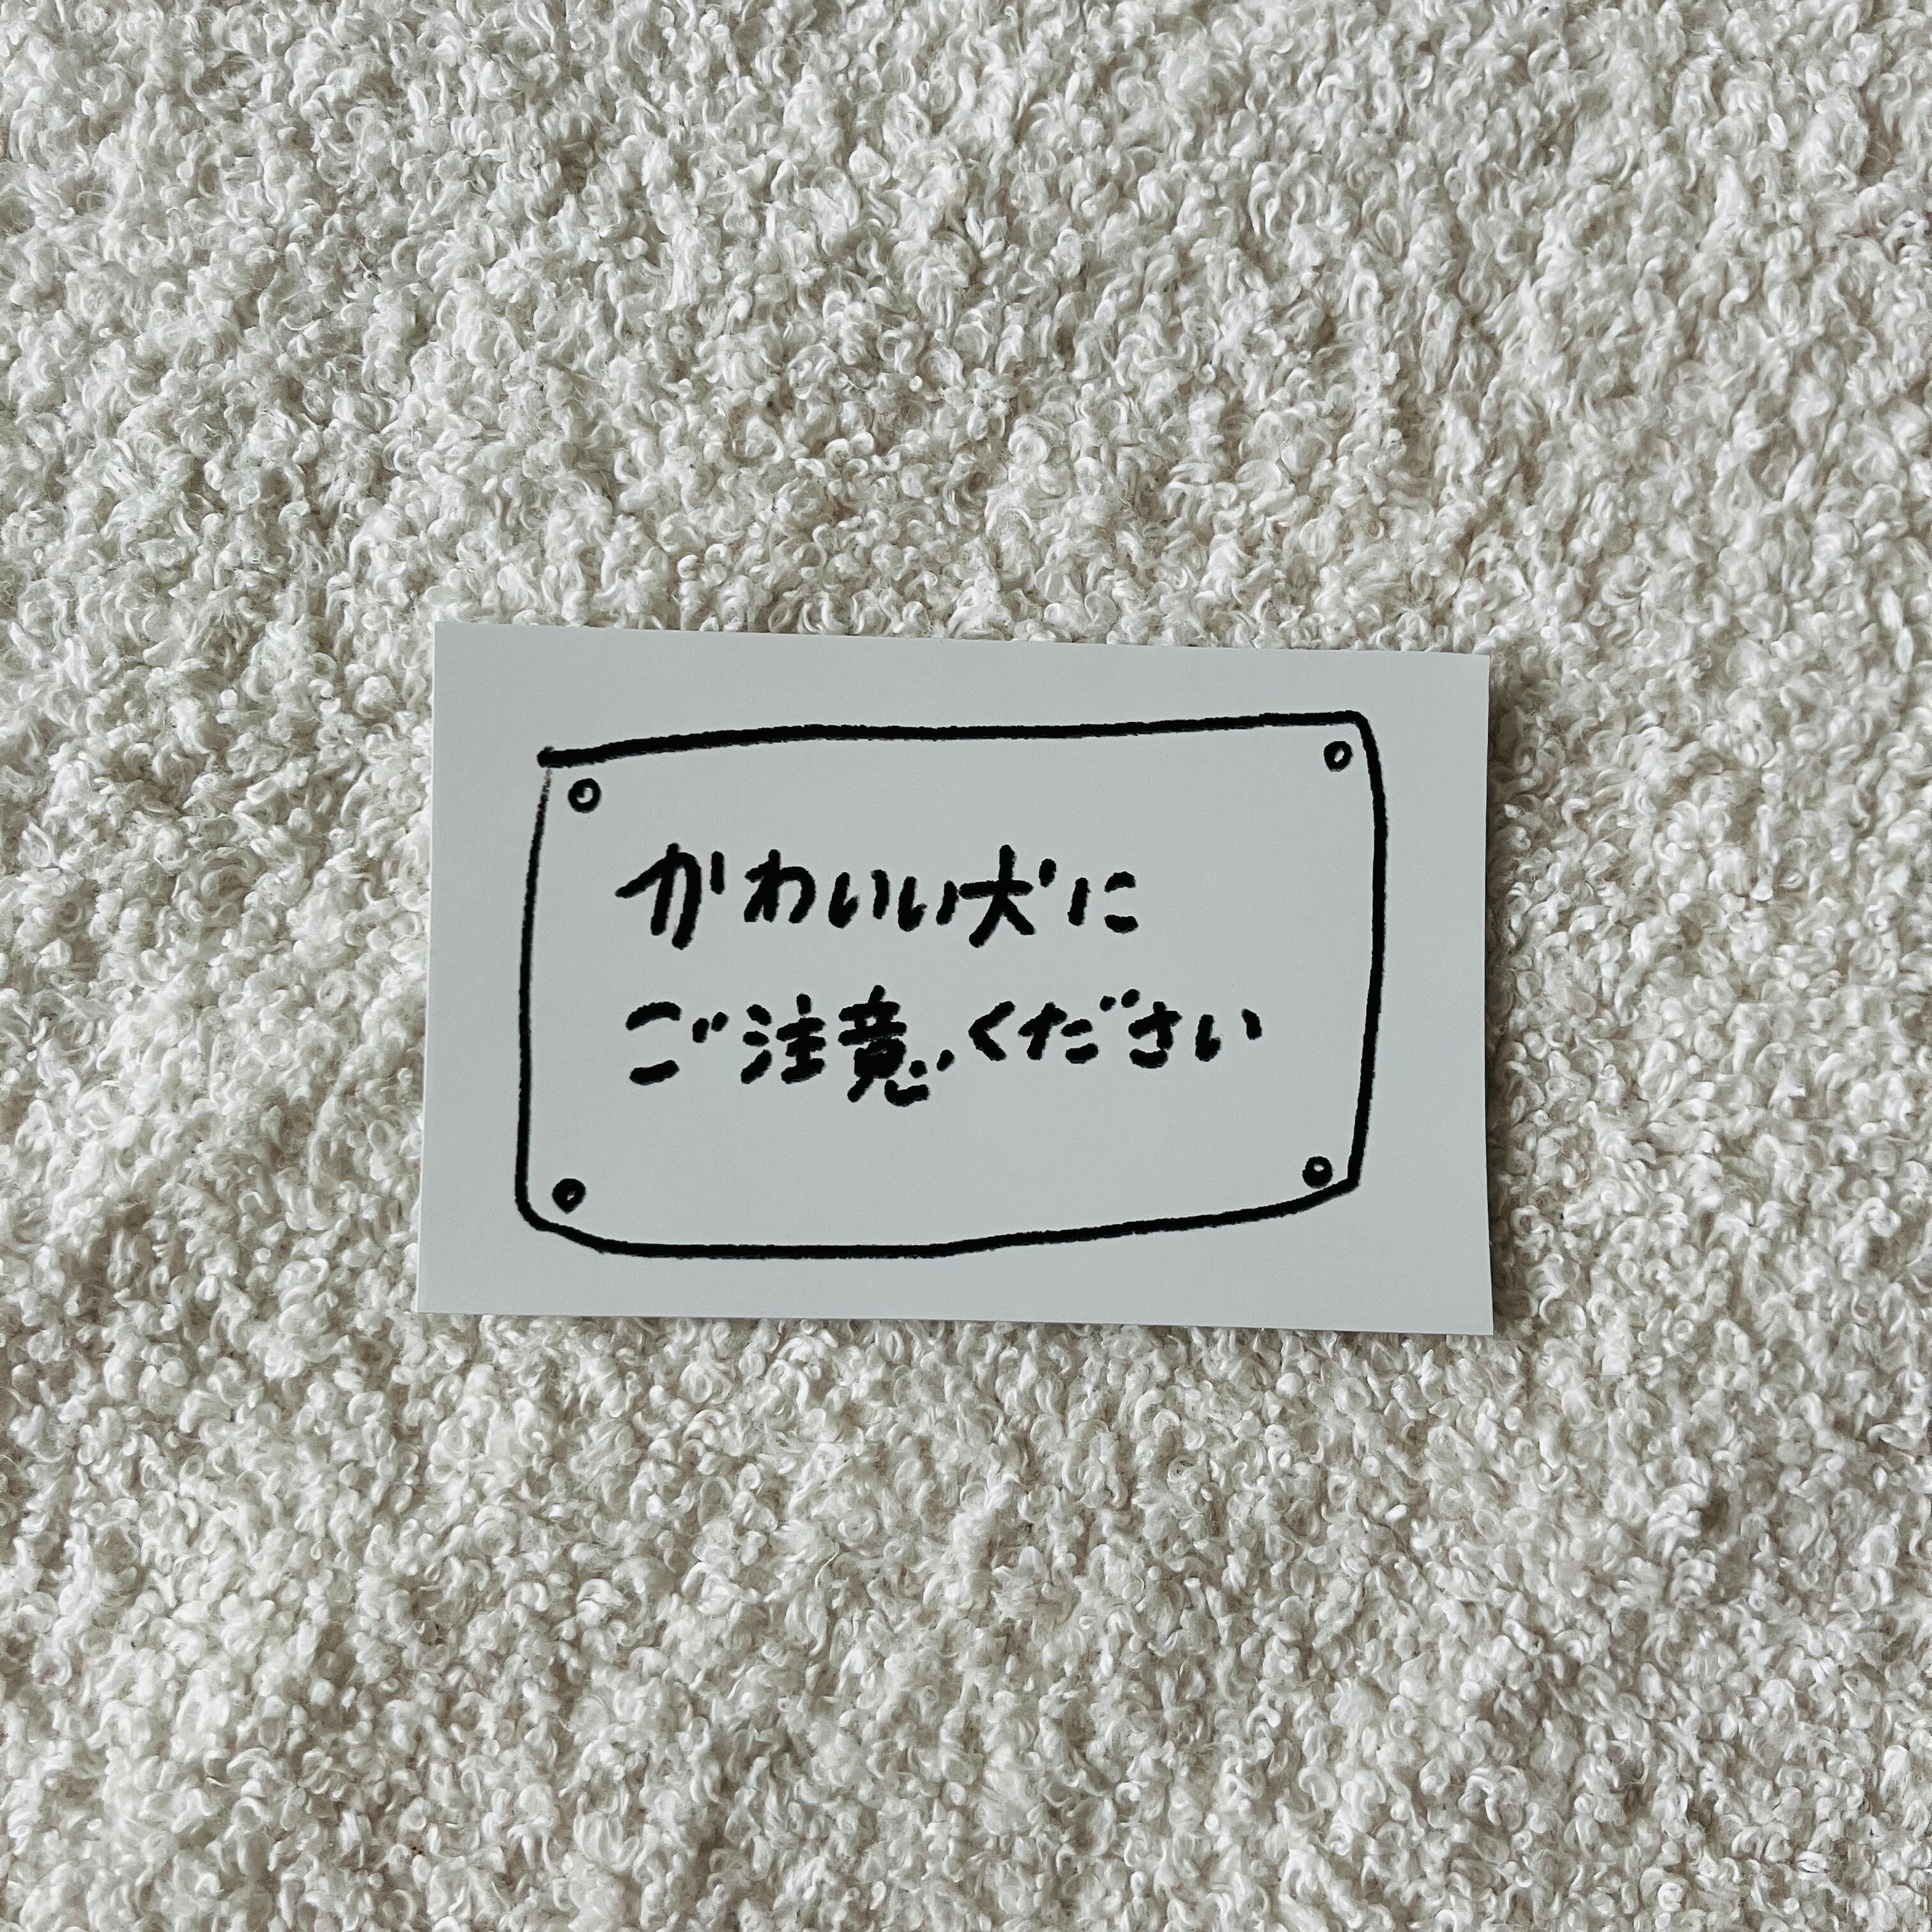 かわいい犬に
ご注意ください